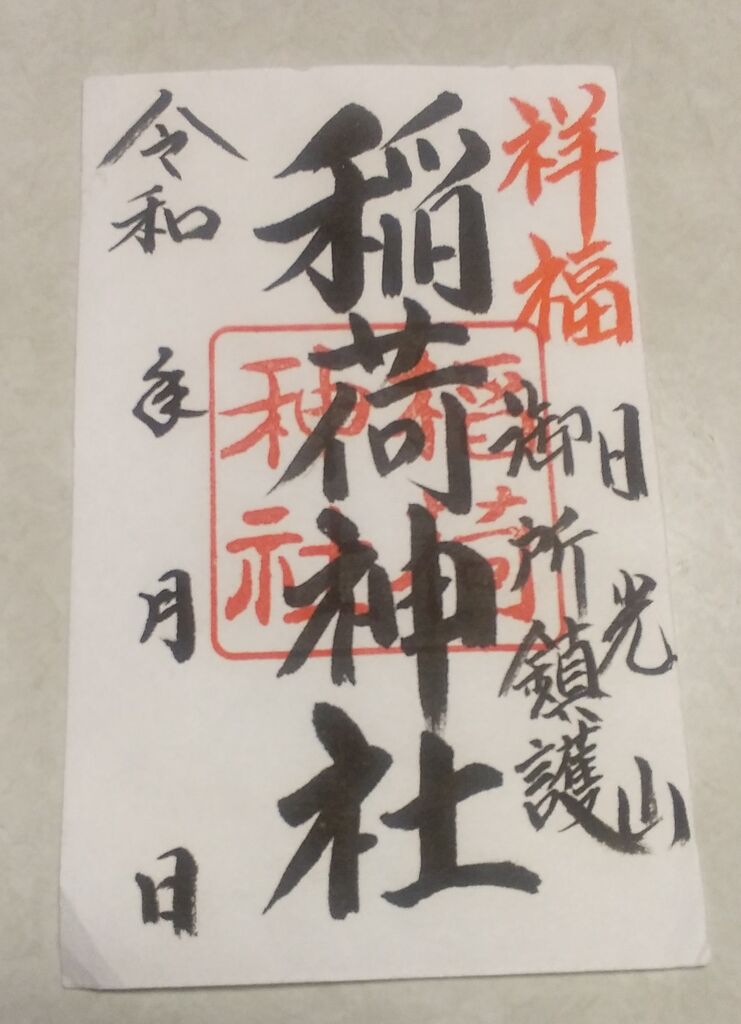 祥福
日光山
御所鎮護
稲荷神社
稲荷
神社
令和 年 月 日